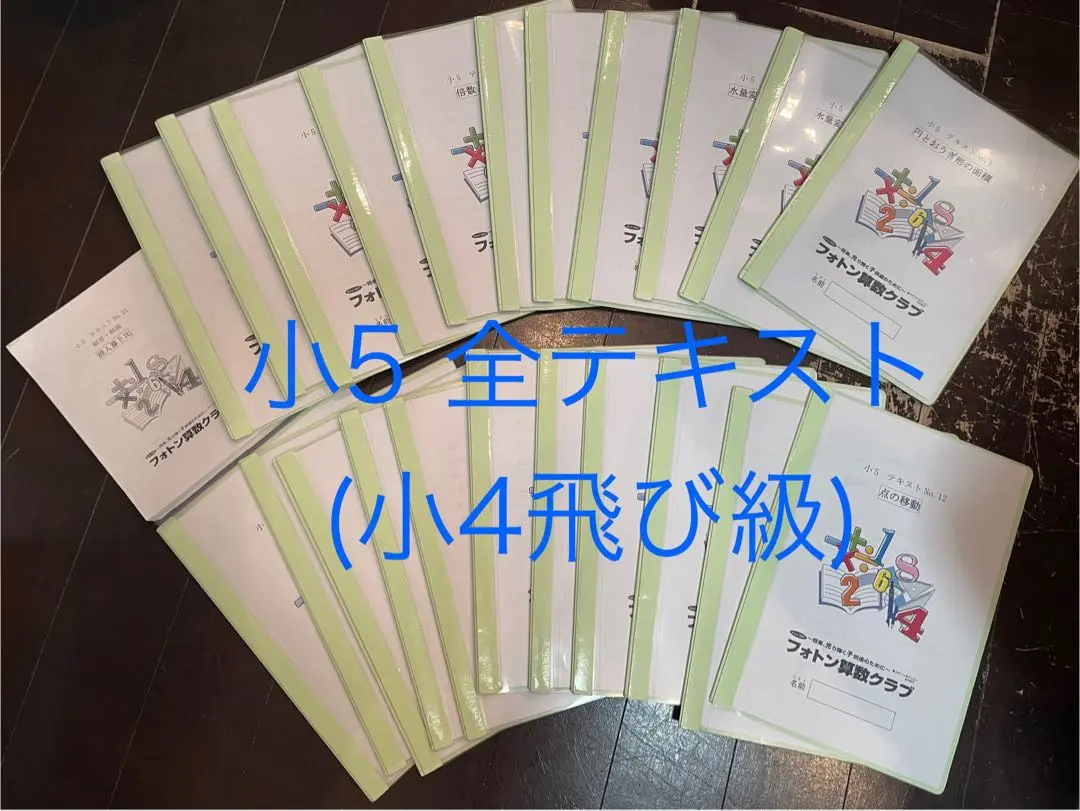 小5 全テキスト
(小4飛び級)
小5 テキストNo.1
円とおうぎ形の面積
フォトン算数クラブ
名前
小5
水量変
小5
水量変
小5 テ
倍数
小5
フォトン
小5 テキストNo.12
点の移動
〜将来、光り輝く子供達のために〜
フォトン算数クラブ
名前
小5 テキストNo.11
解答・解説
フォトン算数クラブ